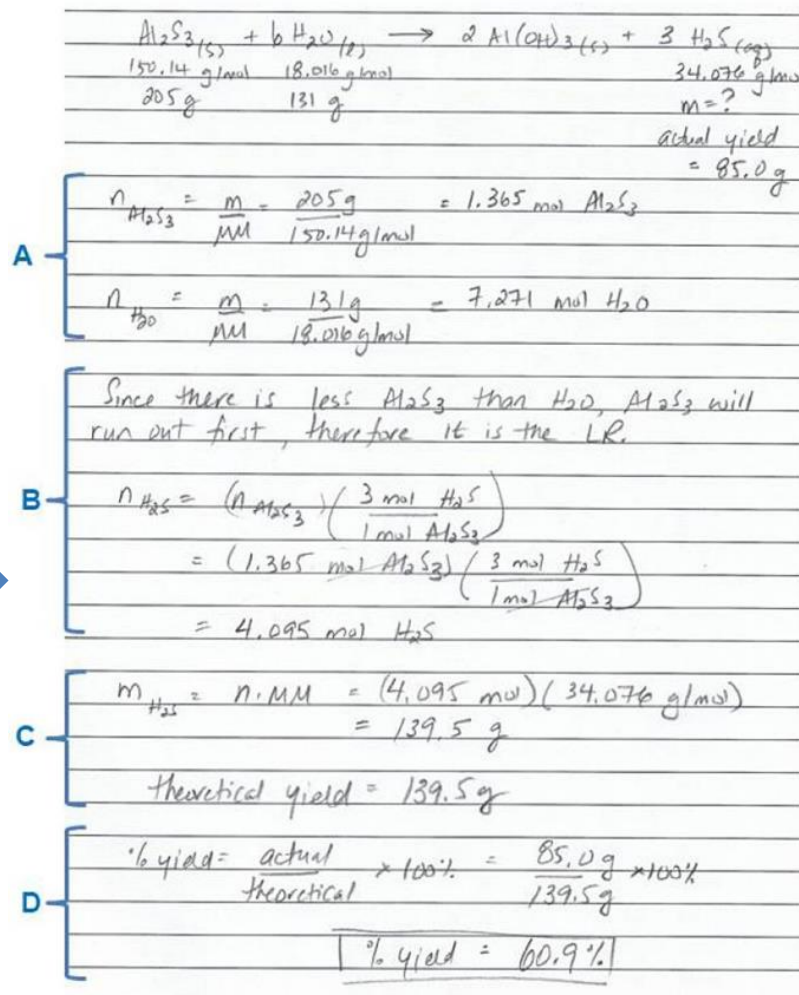 Al2S3(s) + 6 H2O(l) → 2 Al(OH)3(s) + 3 H2S(aq)
150.14 g/mol 18.016 g/mol 34.076 g/mo
205g 131 g m=?
actual yield
= 85.0 g
A
n Al2S3 = m/MM = 205g/150.14g/mol = 1.365 mol Al2S3
n H2O = m/MM = 131g/18.016g/mol = 7.271 mol H2O
B
Since there is less Al2S3 than H2O, Al2S3 will
run out first, therefore it is the LR.
n H2S = (n Al2S3)(3 mol H2S/1 mol Al2S3)
= (1.365 mol Al2S3)(3 mol H2S/1 mol Al2S3)
= 4.095 mol H2S
C
m H2S = n·MM = (4.095 mol)(34.076 g/mol)
= 139.5 g
theoretical yield = 139.5g
D
% yield = actual/theoretical × 100% = 85.0g/139.5g ×100%
% yield = 60.9%